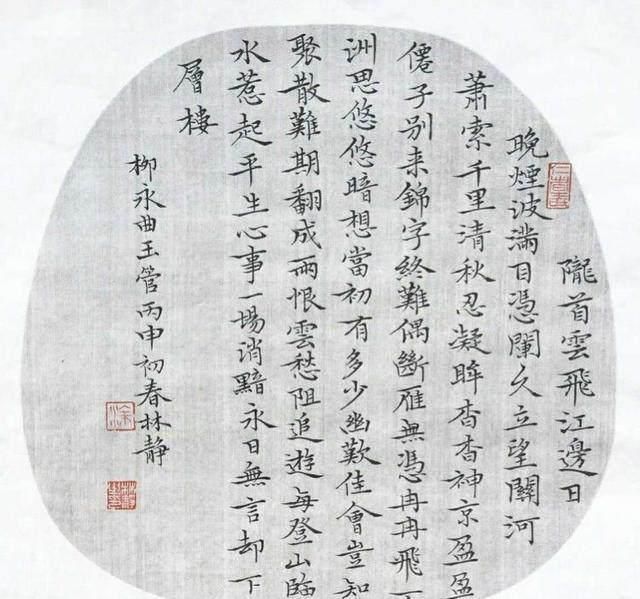 隴首雲飛江邊日
晚煙波滿目憑闌久立望關河
蕭索千里清秋忍凝眸杳杳神京盈盈
僊子别来錦字終難偶斷雁無憑冉冉飛
洲思悠悠暗想當初有多少幽歡佳會豈知
聚散難期翻成雨恨雲愁阻追遊每登山臨
水惹起平生心事一場消黯永日無言却下
層樓
柳永曲玉管丙申初春林静